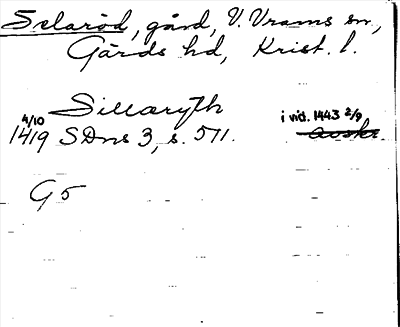 Selaröd, gård, V. Vrams sn,
Gärds hd, Krist. l.
Sillaryth
4/10 i vid. 1443 2/9
1419 SDns 3, s. 571. avskr.
G5